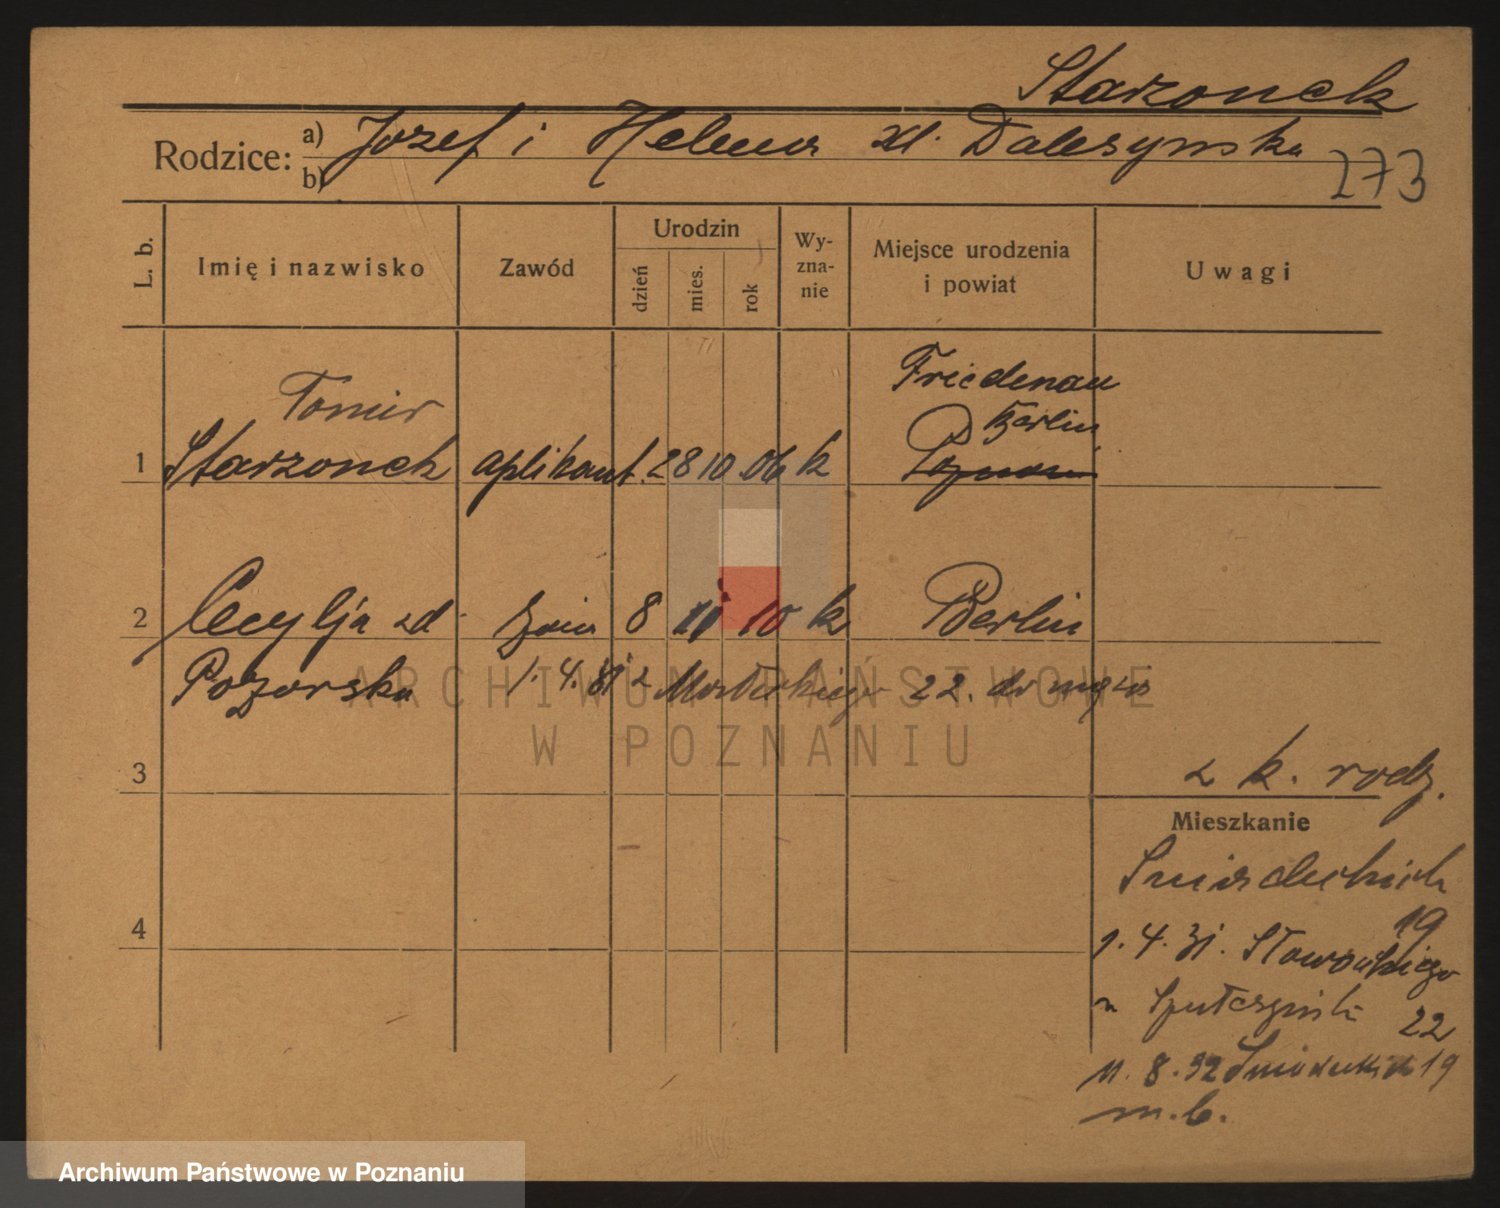 Starzonek
Rodzice: a) Józef i Helena zd. Daleszynska
b)
273
L. b.
Imię i nazwisko
Zawód
Urodzin
dzień
mies.
rok
Wy-
zna-
nie
Miejsce urodzenia
i powiat
Uwagi
Tomir
Friedenau
Berlin
1 Starzonek aplikant 28 10 06 k
2 Cecylja zd żona 8 11 10 k Berlin
Pozorska 1.4.31 z 22. do męża
ARCHIWUM PAŃSTWOWE
W POZNANIU
z k. rodz.
3
Mieszkanie
Śniadeckich
19
4
1.4.31. Słowackiego
22
11.8.32 Śniadeckich 19
m.b.
Archiwum Państwowe w Poznaniu